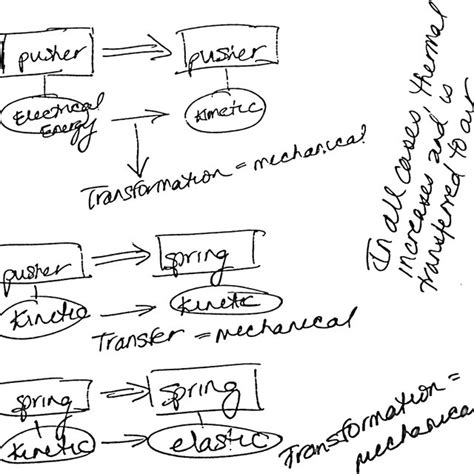 pusher
pusher
Electrical
Energy
Kinetic
Transformation = mechanical
pusher
spring
Kinetic
Kinetic
Transfer = mechanical
spring
spring
Kinetic
elastic
Transformation =
mechanica
In all cases, thermal
increases and is
transferred to air